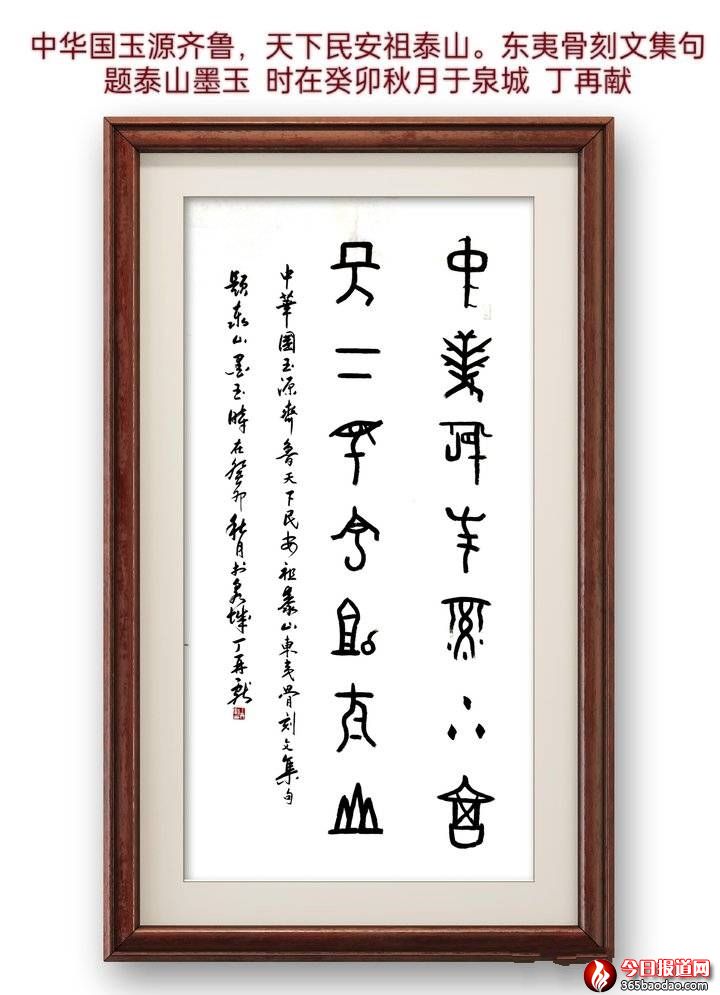 中华国玉源齐鲁，天下民安祖泰山。东夷骨刻文集句
题泰山墨玉 时在癸卯秋月于泉城 丁再献
中華国玉源齐魯
天下民安祖泰山
中華國玉源齊魯天下民安祖泰山東夷骨刻文集句
題泰山墨玉時在癸卯秋月於泉城丁再獻
今日报道网
365baodao.com